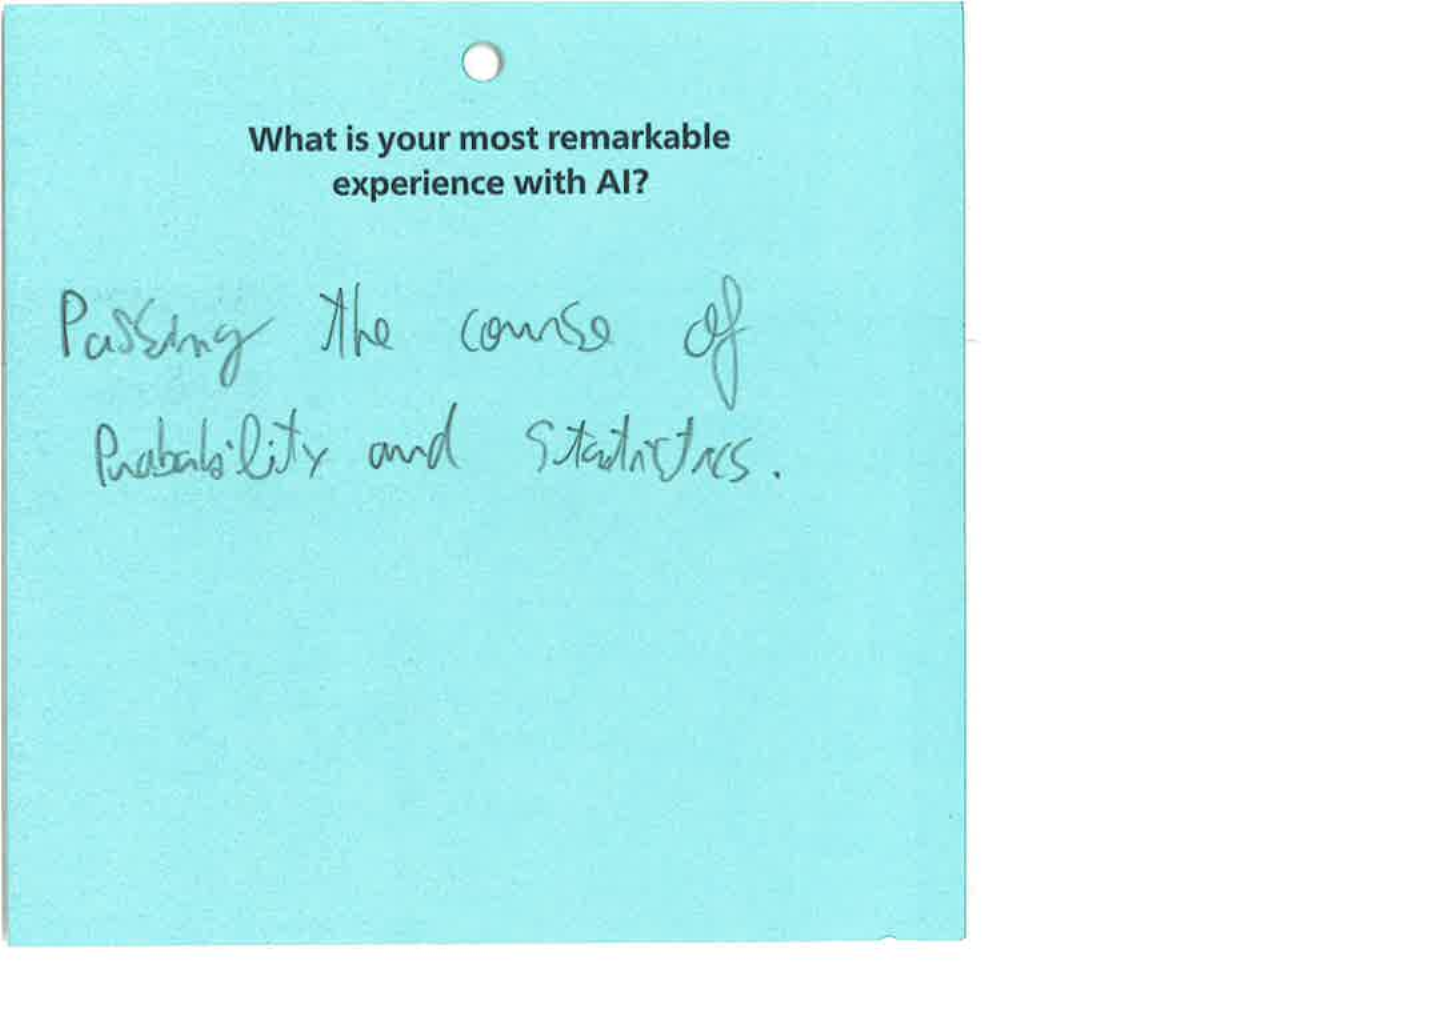 What is your most remarkable
experience with AI?
Passing the course of
Probability and Statistics.